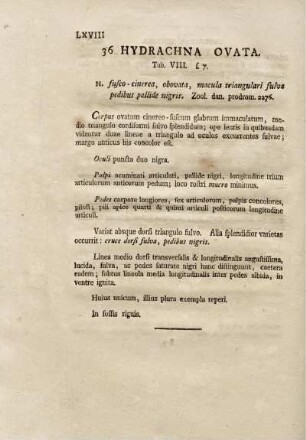 LXVIII
36 HYDRACHNA OVATA.
Tab. VIII. f. 7.
H. fusco-cinerea, obovata, macula triangulari fulva
pedibus pallide nigris. Zool. dan. prodrom. 2276.
Corpus ovatum cinereo-fuscum glabrum immaculatum, medio
triangulo cordiformi fulvo splendidum; ope lentis in quibusdam
videntur duæ lineæ a triangulo ad oculos excurrentes fulvæ;
margo anticus his concolor est.
Oculi puncta duo nigra.
Palpi acuminati articulati, pallide nigri, longitudine trium
articulorum anticorum pedum; loco rostri mucro minimus.
Pedes corpore longiores, sex articulorum, palpis concolores,
pilosi; pili apice quarti & quinti articuli posticorum longitudine
articuli.
Variat absque dorsi triangulo fulvo. Alia splendidior varietas
occurrit: cruce dorsi fulva, pedibus nigris.
Linea medio dorsi transversalis & longitudinalis angustissima,
lucida, fulva, ac pedes saturate nigri hanc distinguunt, cætera
eadem; subtus lineola media longitudinalis inter pedes albida, in
ventre ignita.
Huius unicum, illius plura exempla reperi.
In fossis riguis.